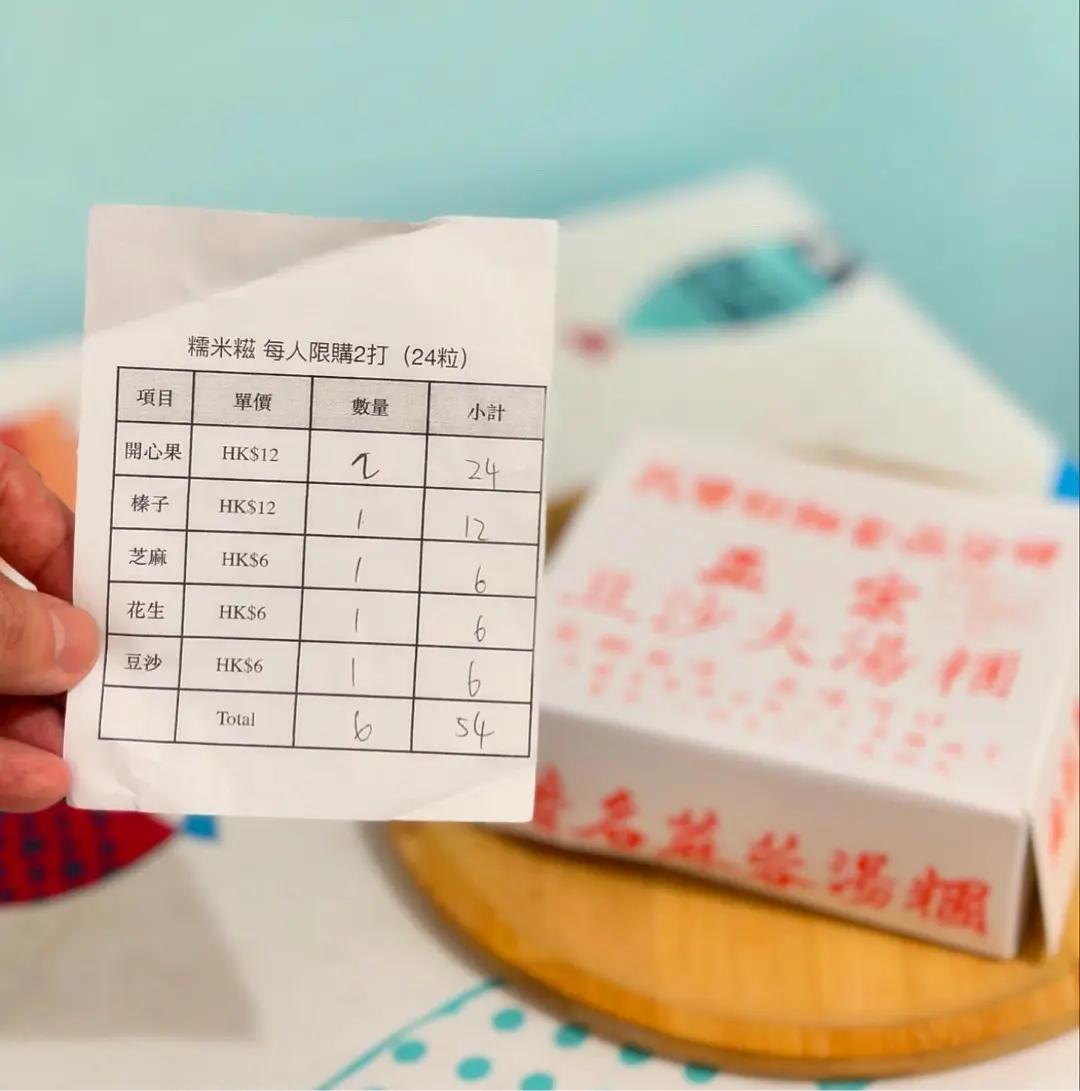 糯米糍 每人限購2打（24粒）
項目 單價 數量 小計
開心果 HK$12 2 24
榛子 HK$12 1 12
芝麻 HK$6 1 6
花生 HK$6 1 6
豆沙 HK$6 1 6
Total 6 54
豆沙大湯粿
名蔴蓉湯粿